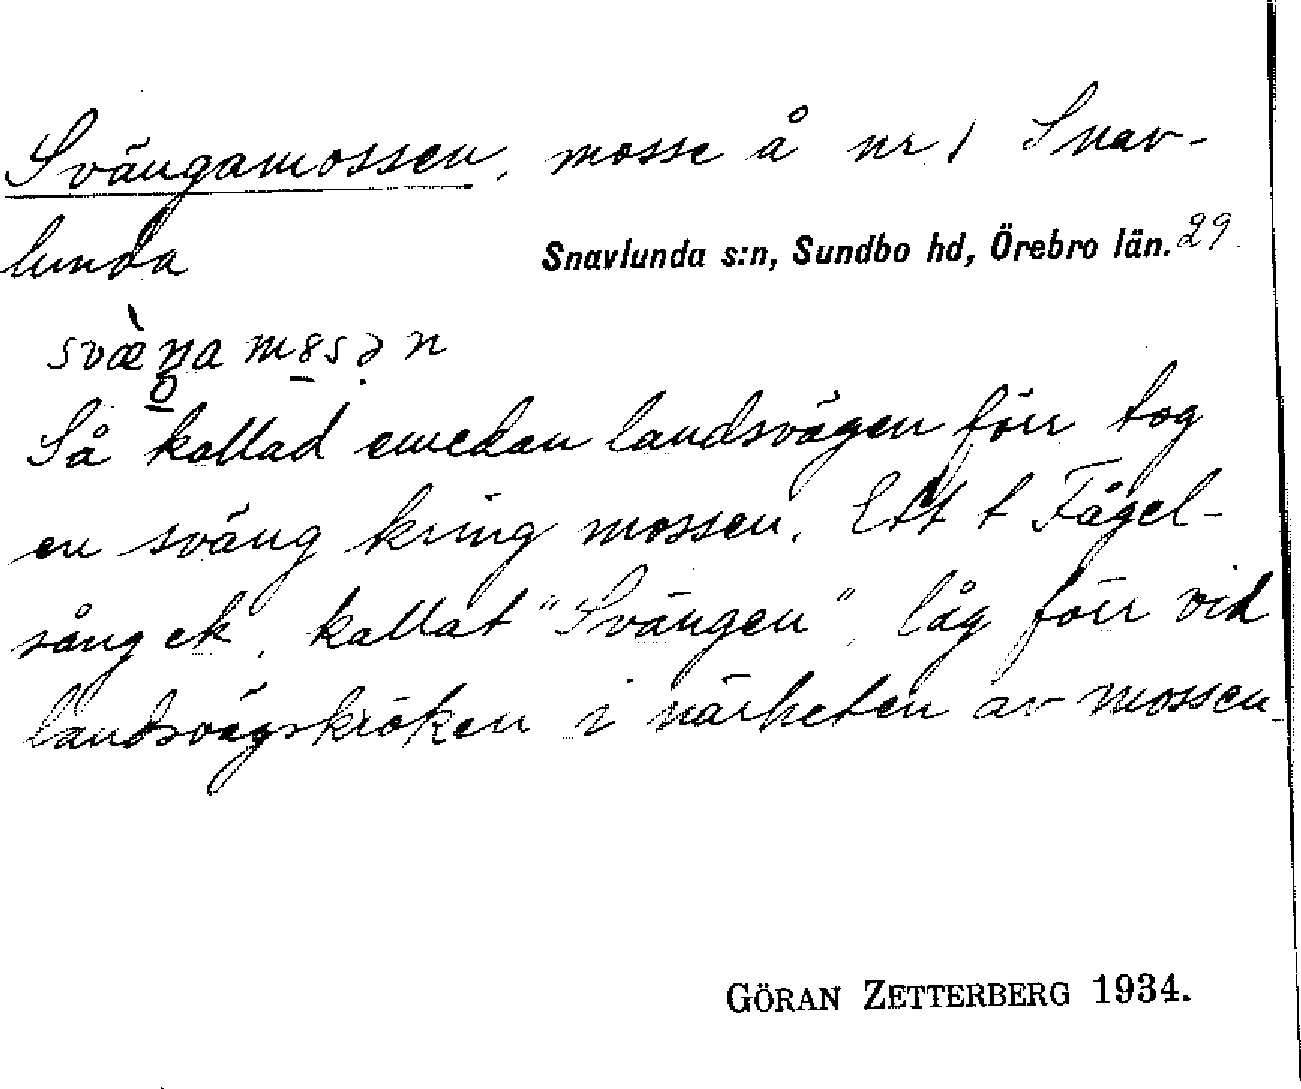 Svängamossen, mosse å nr 1 Snav-
lunda
Snavlunda s:n, Sundbo hd, Örebro län. 29
svæ̀ŋa mɵsən
Så kallad emedan landsvägen förr tog
en sväng kring mossen. Ett t Fågel-
sång ek, kallat "Svängen", låg förr vid
landsvägskröken i närheten av mossen.
GÖRAN ZETTERBERG 1934.